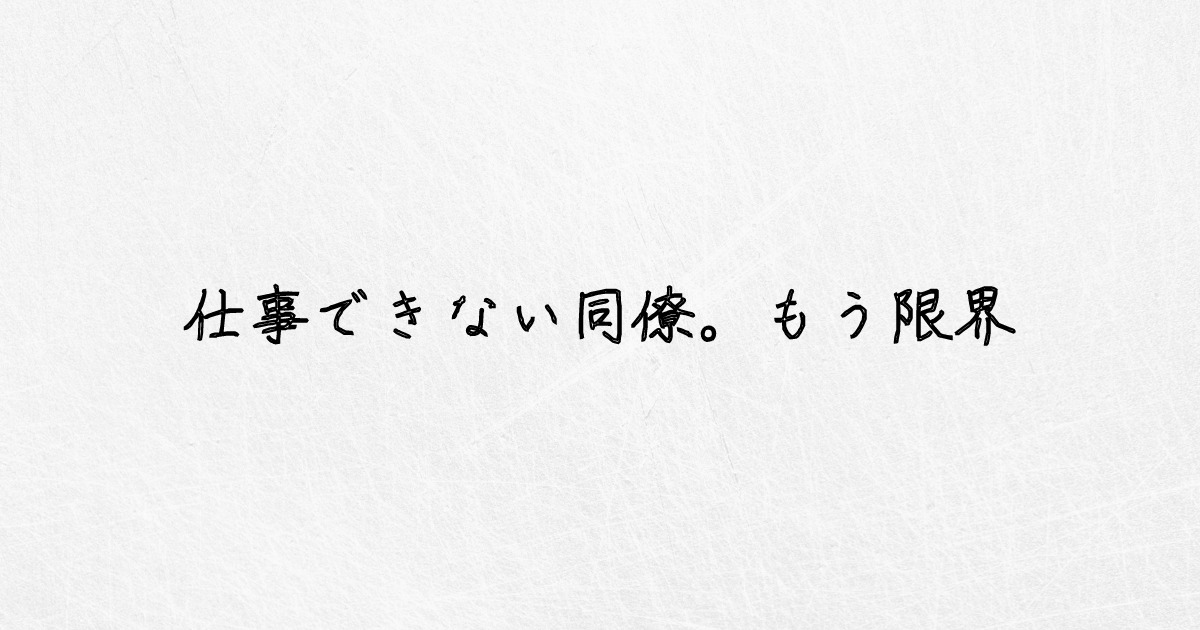 仕事できない同僚。もう限界